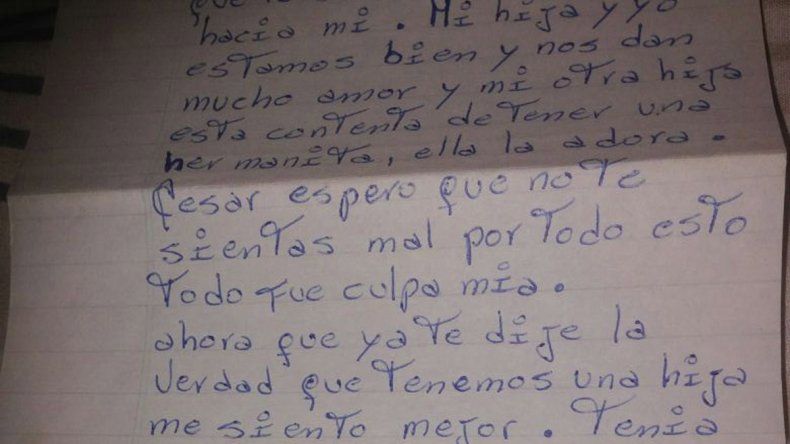 que
hacia mi. Mi hija y yo
estamos bien y nos dan
mucho amor y mi otra hija
esta contenta de tener una
hermanita, ella la adora.
Cesar espero que no te
sientas mal por todo esto
todo fue culpa mia.
ahora que ya te dije la
verdad que tenemos una hija
me siento mejor. Tenia